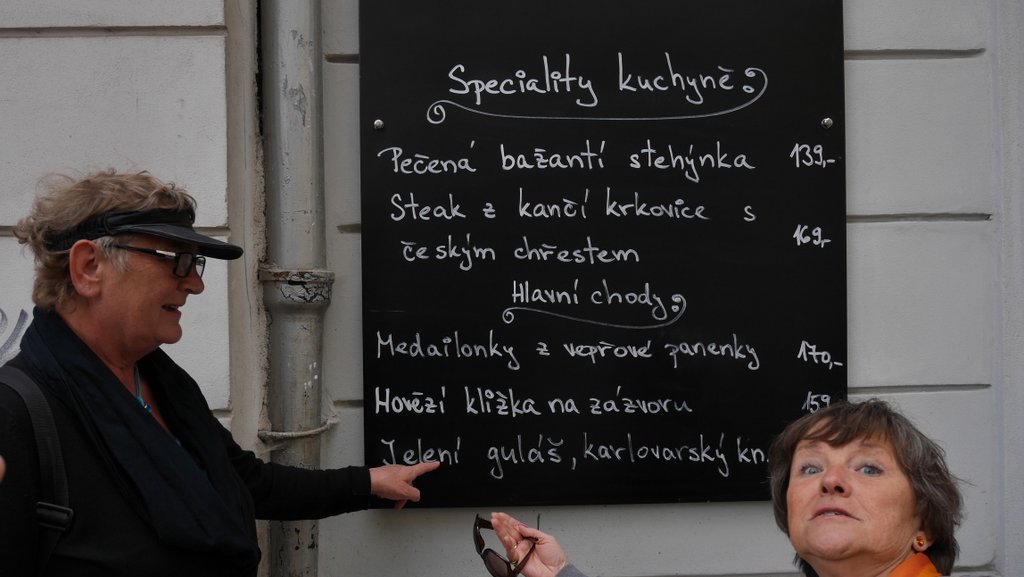 Speciality kuchyně
Pečená bažantí stehýnka 139,-
Steak z kančí krkovice s
českým chřestem 169,-
Hlavní chody
Medailonky z vepřové panenky 170,-
Hovězí kližka na zázvoru 159
Jelení guláš, karlovarský kn